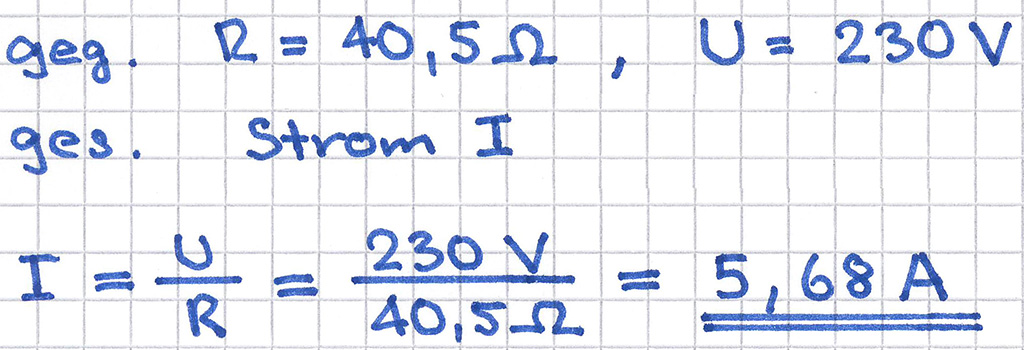 geg. R = 40,5 Ω , U = 230 V
ges. Strom I
I = U/R = 230 V/40,5 Ω = 5,68 A